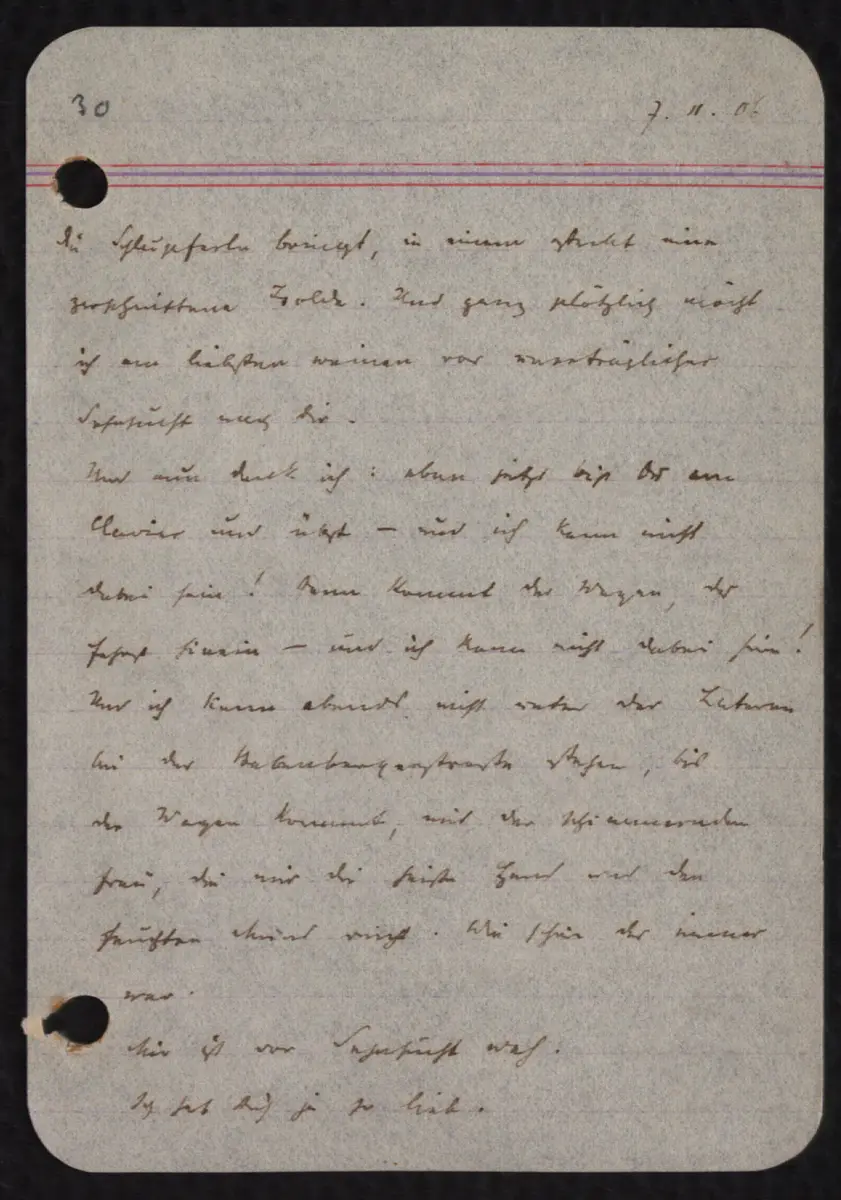 30
7. 11. 06
die Schlupferln bringt, in einem steckt eine
zerschnittene Isolde. Und ganz plötzlich möcht
ich am liebsten weinen vor unerträglicher
Sehnsucht nach dir.
Und nun denk ich: eben jetzt bist Du am
Clavier und übst – und ich kann nicht
dabei sein! Dann kommt der Wagen, Du
fährst hinein – und ich kann nicht dabei sein!
Und ich kann abends nicht unter der Laterne
bei der Babenbergerstrasse stehen, bis
der Wagen kommt, mit der schimmernden
Frau, die mir die heiße Hand und den
feuchten Mund reicht. Wie schön das immer
war.
Mir ist vor Sehnsucht weh.
Ich hab Dich ja so lieb.